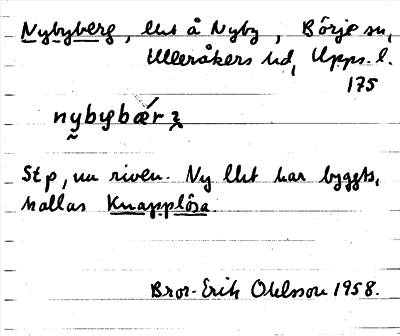 Nybyberg, lht å Nyby, Börje sn,
Ulleråkers hd, Upps. l.
175
nybybær
Stp, nu riven. Ny lht har byggts,
kallas Knapplösa.
Bror-Erik Ohlsson 1958.